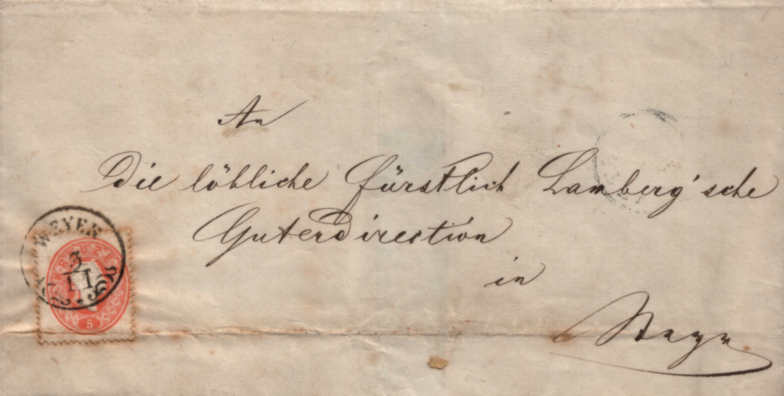 An
Die löbliche fürstlich Lamberg'sche
Güterdirection
in
Steyr
WEYER
3
11
5